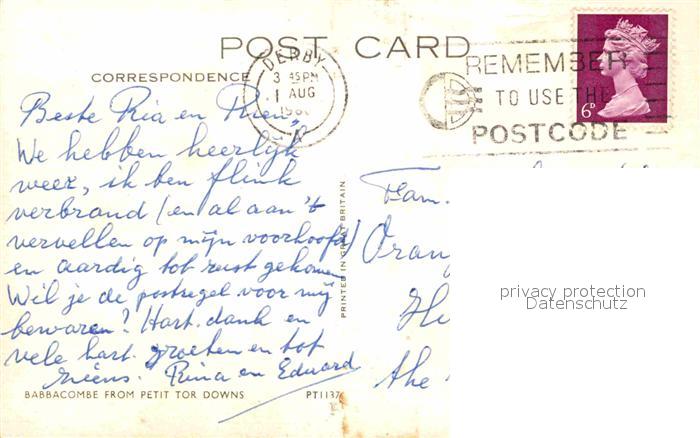 POST CARD
CORRESPONDENCE
DERBY
3 45PM
1 AUG
REMEMBER
TO USE THE
POSTCODE
6D
Beste Ria en Rien,
We hebben heerlijk
weer, ik ben flink
verbrand (en al aan 't
vervellen op mijn voorhoofd)
en aardig tot rust gekomen
Wil je de postzegel voor mij
bewaren? Hart. dank en
vele hart. groeten en tot
ziens. Rina en Eduard
Fam.
Oran
the
PRINTED IN GREAT BRITAIN
privacy protection
Datenschutz
BABBACOMBE FROM PETIT TOR DOWNS PT1137